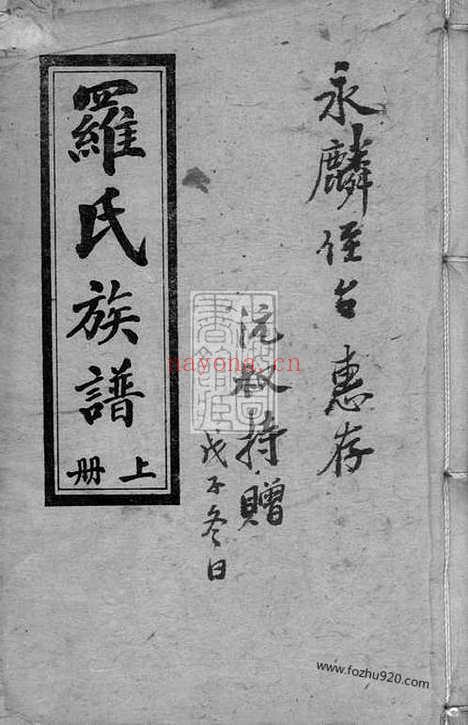 永麟侄台 惠存
沅叔持贈
戊子冬日
羅氏族譜
上册
nayona.cn
www.fozhu920.com